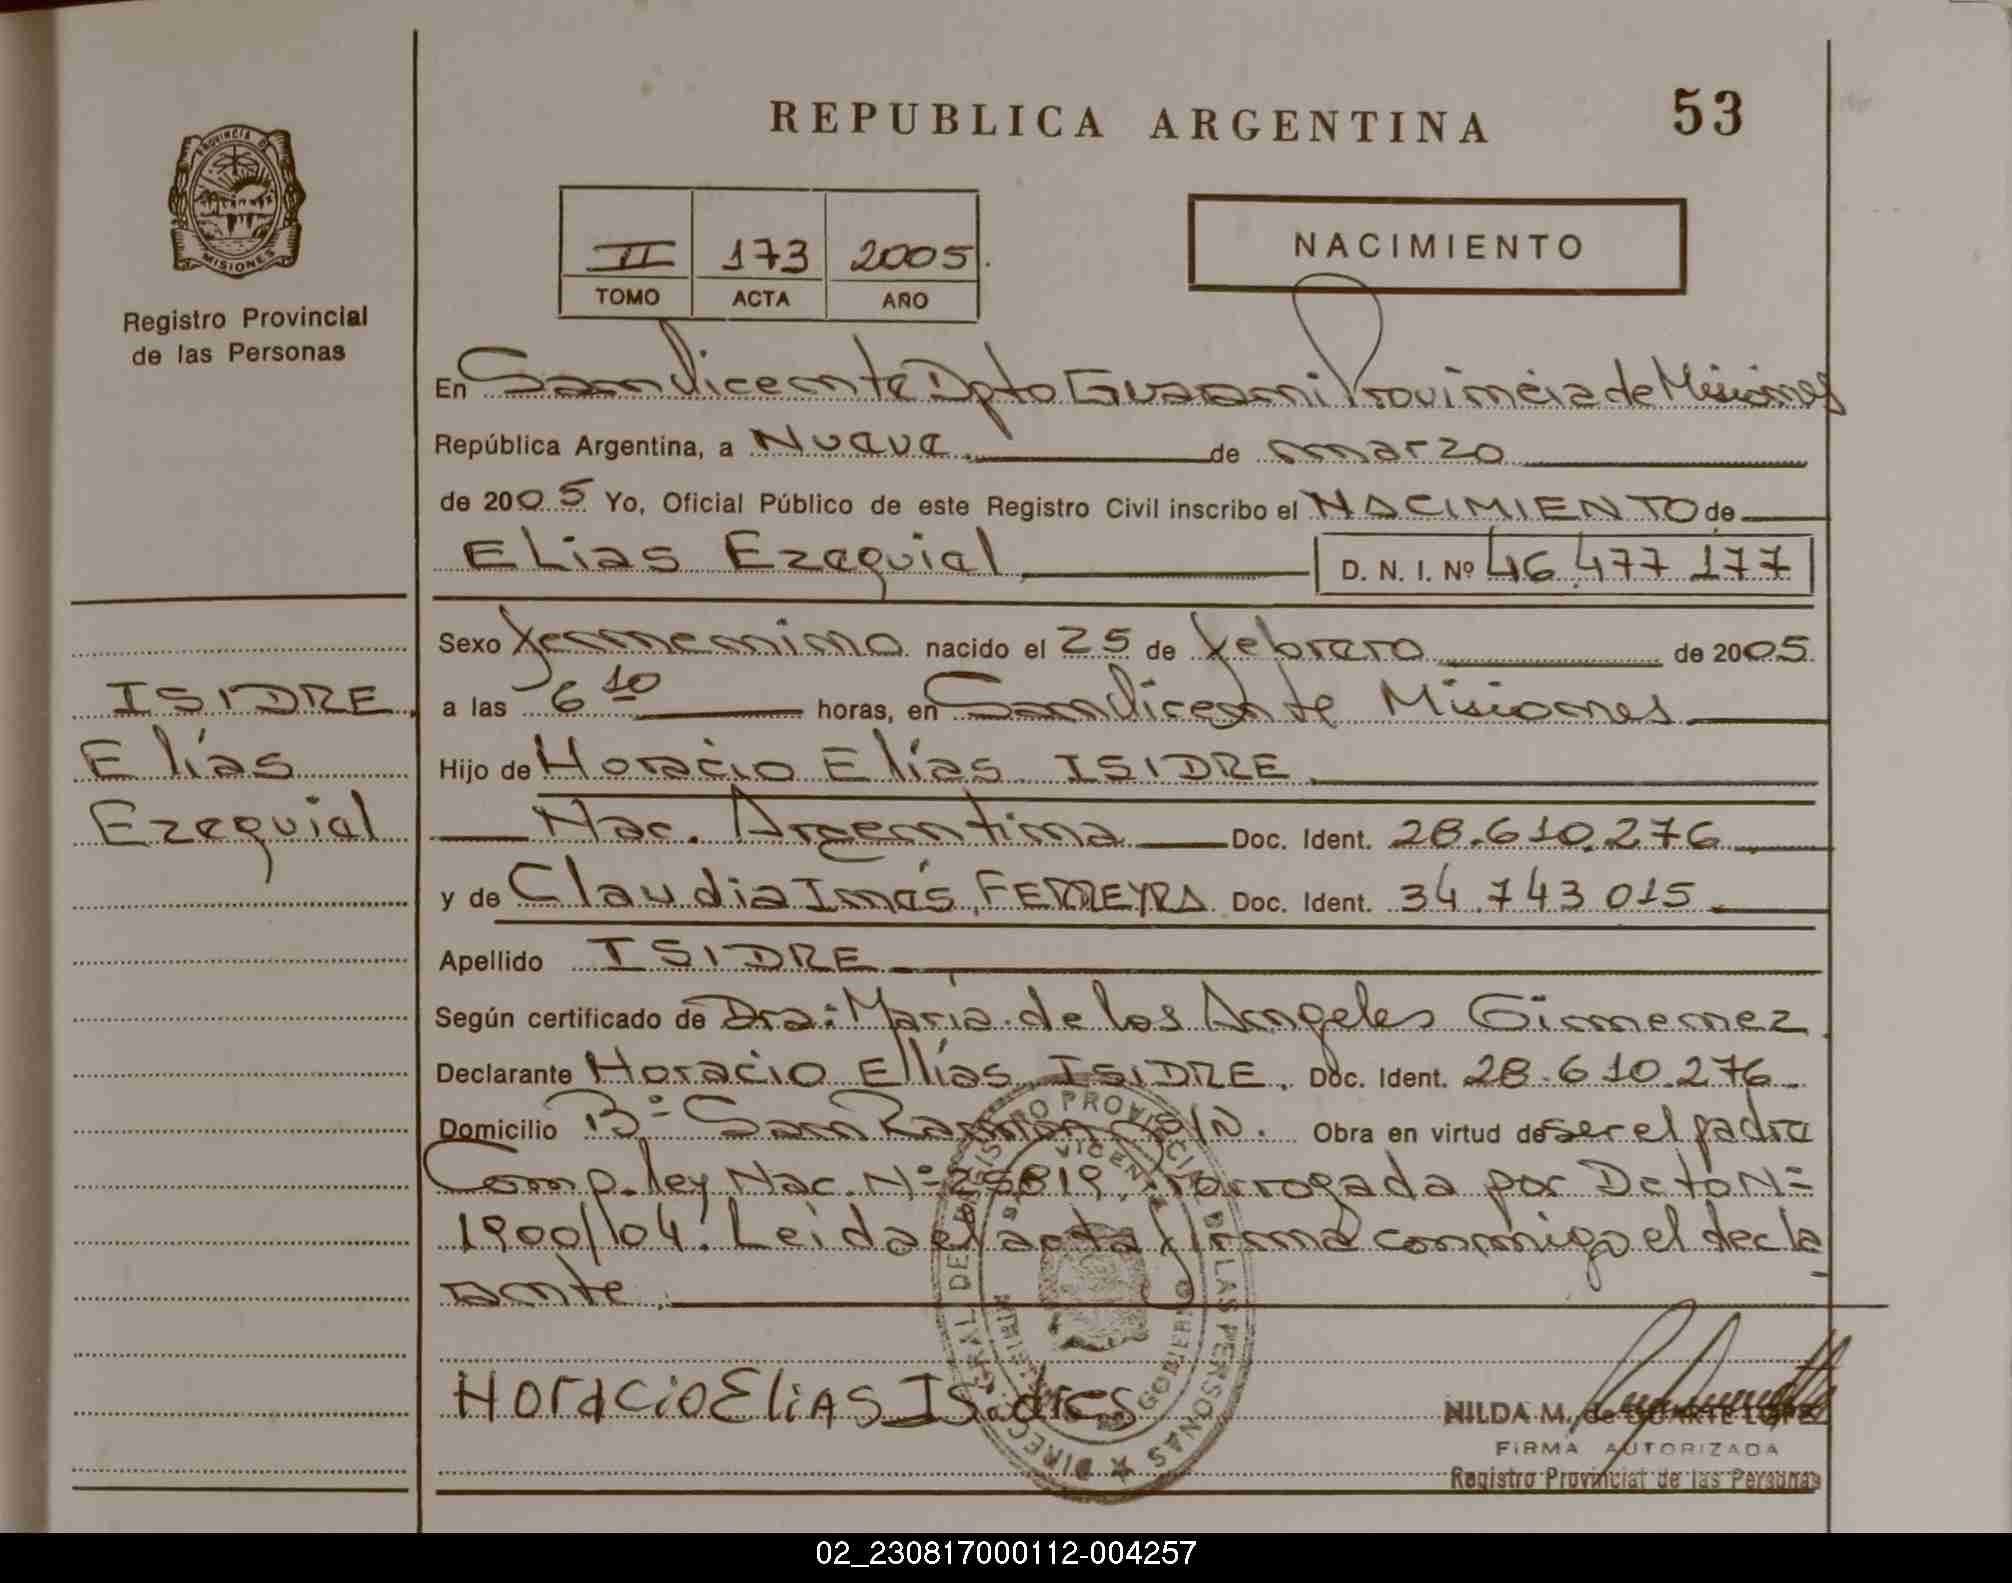 REPUBLICA ARGENTINA
53
PROVINCIA DE
MISIONES
Registro Provincial
de las Personas
II 173 2005.
TOMO ACTA AÑO
NACIMIENTO
En San Vicente Dpto Guarani Provincia de Misiones
República Argentina, a Nueve de marzo
de 2005 Yo, Oficial Público de este Registro Civil inscribo el NACIMIENTO de
Elias Ezequiel D. N. I. Nº 46.477.177
Sexo femenino nacido el 25 de febrero de 2005.
a las 6 10 horas, en San Vicente Misiones
Hijo de Horacio Elías ISIDRE
Nac. Argentina Doc. Ident. 28.610.276
y de Claudia Inés FERREYRA Doc. Ident. 34.743.015
Apellido ISIDRE
Según certificado de Dra: María de los Angeles Gimenez
Declarante Horacio Elías ISIDRE. Doc. Ident. 28.610.276
Domicilio Bº San Ramón S/N. Obra en virtud de ser el padre
Comp. ley Nac. Nº 25819. Prorrogada por Dcto Nº
1900/04. Leida el acta firma conmigo el decla
rante.
ISIDRE
Elías
Ezequiel
Horacio Elias Isidres
DIREC. GRAL DE REGISTRO PROVINCIAL DE LAS PERSONAS
VICENTE
GOBIERNO
NILDA M. de DUARTE LOPEZ
FIRMA AUTORIZADA
Registro Provincial de las Personas
02_230817000112-004257